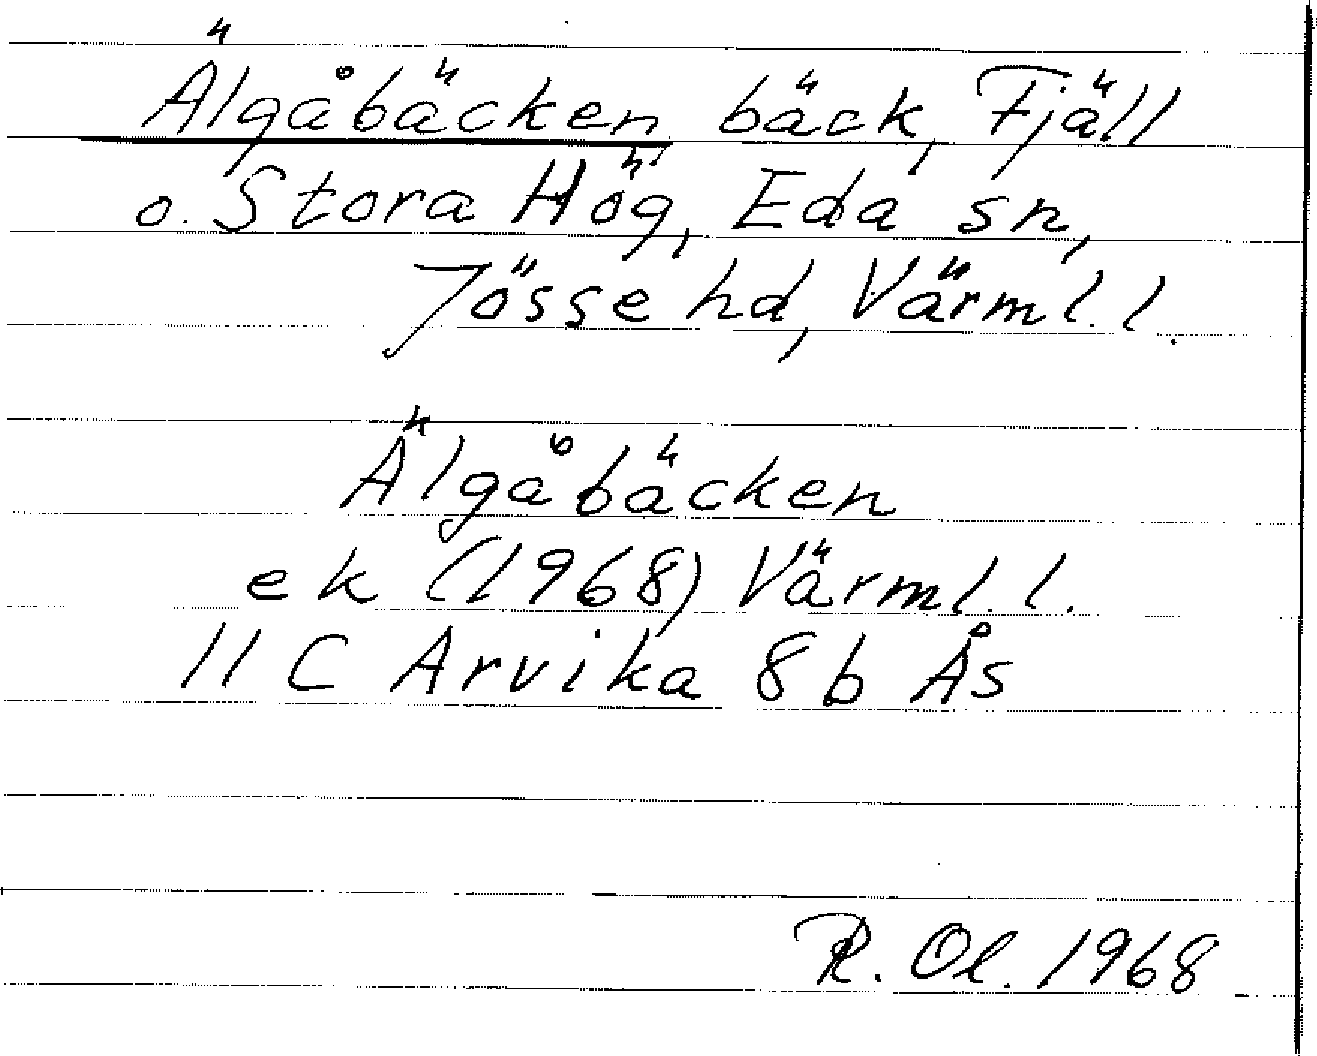 Älgåbäcken bäck, Fjäll
o. Stora Hög, Eda sn,
Jösse hd, Värml. l.
Älgåbäcken
ek (1968) Värml. l.
11 C Arvika 8 b Ås
R. Ol. 1968